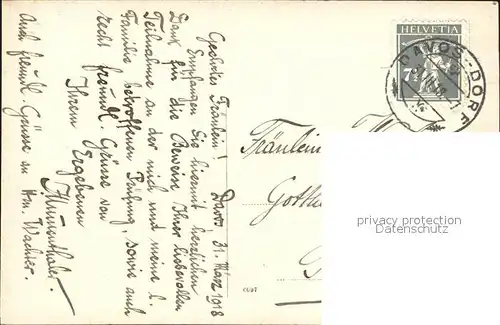 Davos 31. März 1918
Geehrtes Fräulein!
Empfangen Sie hiermit herzlichen
Dank für die Beweise Ihrer liebevollen
Teilnahme an der mich und meine l.
Familie betroffenen Prüfung, sowie auch
recht freundl. Grüsse von
Ihrem Ergebenen
Auch freundl. Grüsse an Hrn. Wachter.
HELVETIA
7½
DAVOS-DORF
Fräulein
privacy protection
Datenschutz